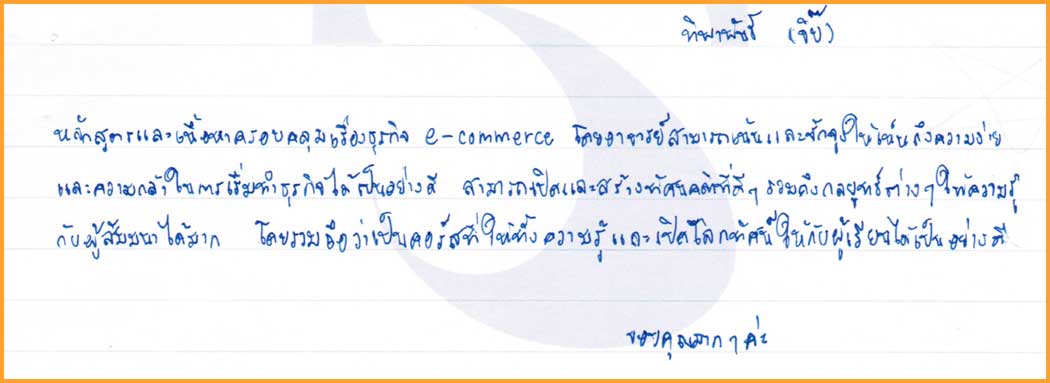 ทิพาพันธ์ (จิ๊บ)
หลักสูตรและเนื้อหาครอบคลุมเรื่องธุรกิจ e-commerce โดยอาจารย์สามารถเน้นและชักจูงให้เห็นถึงความง่าย
และความกล้าในการเริ่มทำธุรกิจได้เป็นอย่างดี สามารถเปิดและสร้างทัศนคติที่ดีๆ รวมถึงกลยุทธ์ต่างๆ ให้ความรู้
กับผู้สัมมนาได้มาก โดยรวมถือว่าเป็นคอร์สที่ให้ทั้งความรู้และเปิดโลกทัศน์ให้กับผู้เรียนได้เป็นอย่างดี
ขอบคุณมากๆค่ะ